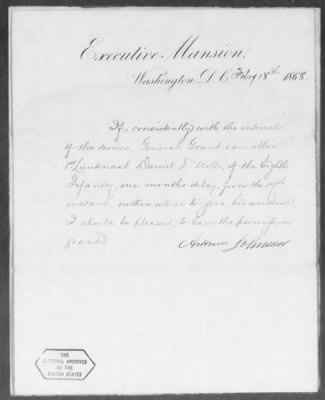 Executive Mansion,
Washington, D.C. Feby 18th 1868.
If, consistently with the interests
of the service, General Grant can allow
1st Lieutenant Daniel T. Wells, of the Eighth
Infantry, one months delay, from the
instant, within which to join his command,
I should be pleased to have the permission
granted.
Andrew Johnson
THE
NATIONAL ARCHIVES
OF THE
UNITED STATES